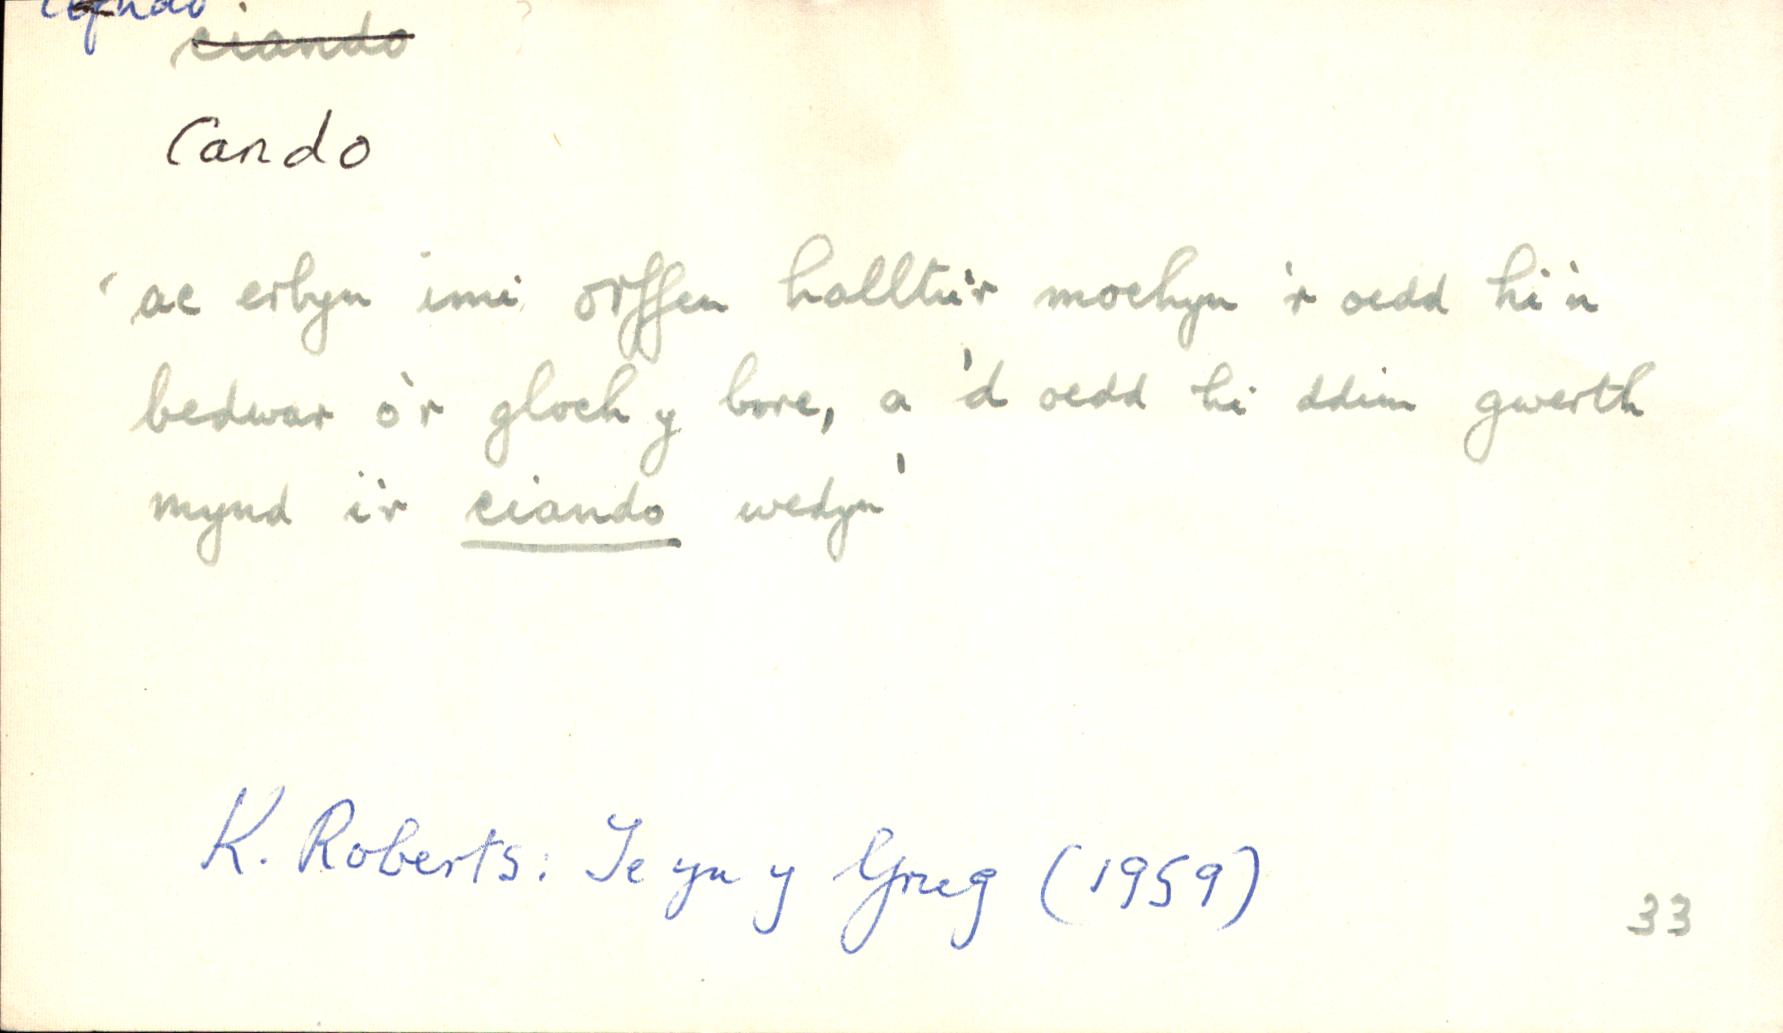 ciando
Cando
'ac erbyn imi orffen halltu'r mochyn 'r oedd hi'n
bedwar o'r gloch y bore, a 'd oedd hi ddim gwerth
mynd i'r ciando wedyn'
K. Roberts: Te yn y Grug (1959)
33